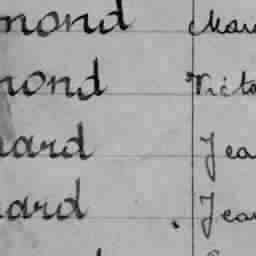 mond Mau
mond Victo
nard Jea
nard Jea